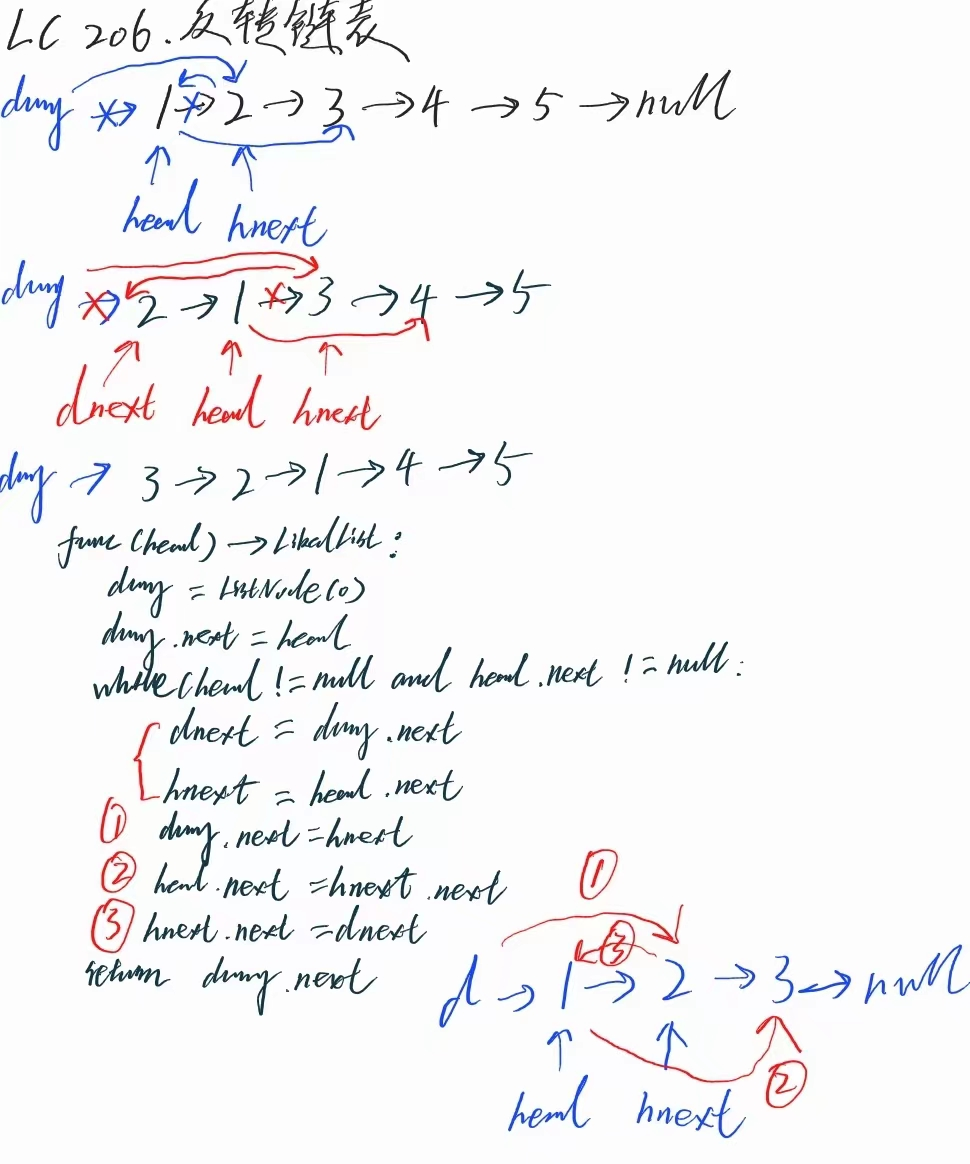 LC 206. 反转链表
dmy → 1 → 2 → 3 → 4 → 5 → null
head hnext
dmy → 2 → 1 → 3 → 4 → 5
dnext head hnext
dmy → 3 → 2 → 1 → 4 → 5
func(head) → LinkedList:
dmy = ListNode(0)
dmy.next = head
while(head != null and head.next != null:
dnext = dmy.next
hnext = head.next
① dmy.next = hnext
② head.next = hnext.next
③ hnext.next = dnext
return dmy.next
①
③
d → 1 → 2 → 3 → null
②
head hnext